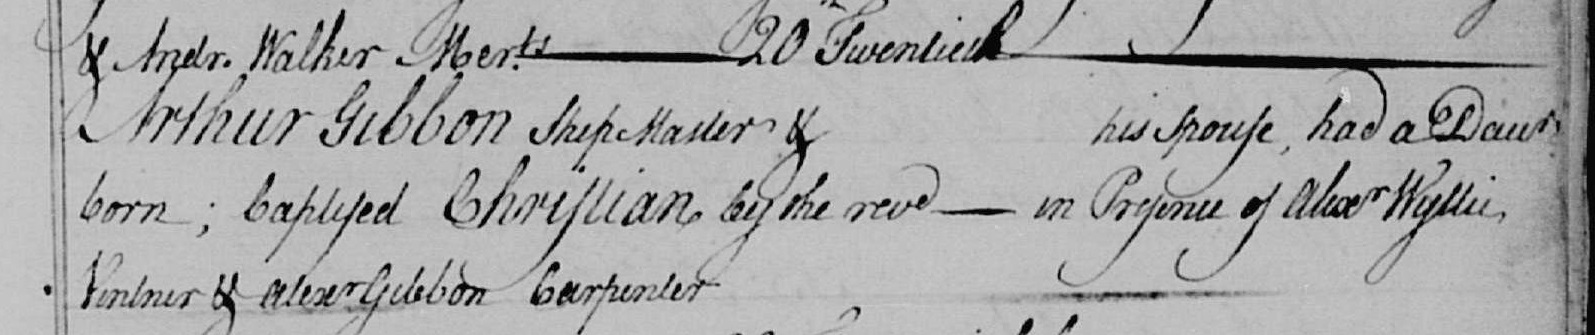 & Andr. Walker Merts 20th Twentieth
Arthur Gibbon Ship Master & his Spouse, had a Daur
born; baptised Christian by the revd — in Presence of Alexr Wyllie
Vintner & Alexr Gibbon Carpenter